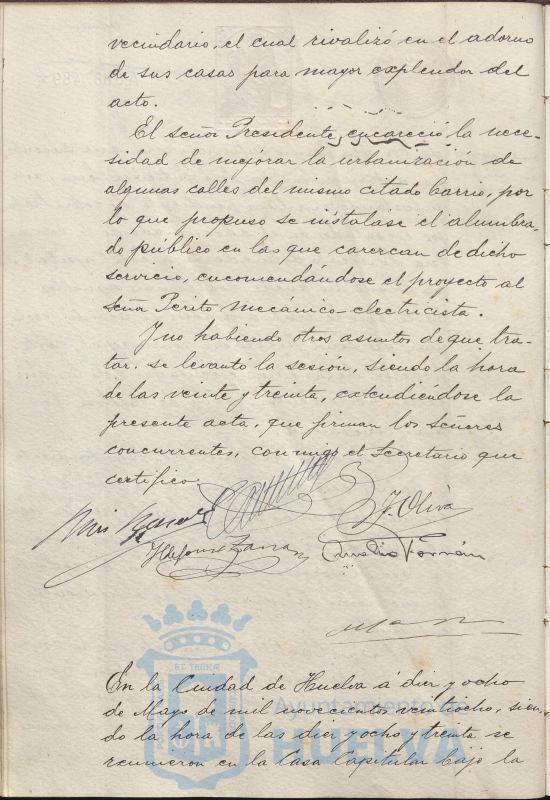 vecindario, el cual rivalizó en el adorno
de sus casas para mayor explendor del
acto.
El señor Presidente, encareció la nece-
sidad de mejorar la urbanización de
algunas calles del mismo citado barrio, por
lo que propuso se instalase el alumbra-
do público en las que carezcan de dicho
servicio, encomendándose el proyecto al
señor Perito mecánico-electricista.
Y no habiendo otros asuntos de que tra-
tar, se levantó la sesión, siendo la hora
de las veinte y treinta, extendiéndose la
presente acta, que firman los señores
concurrentes, conmigo el Secretario que
certifico.
J. Oliva
Ildefonso
Aurelio
ET TERRÆ
En la Ciudad de Huelva á diez y ocho
de Mayo de mil novecientos veintiocho, sien-
do la hora de las diez y ocho y treinta se
reunieron en la Casa Capitular bajo la
Ayuntamiento de
HUELVA